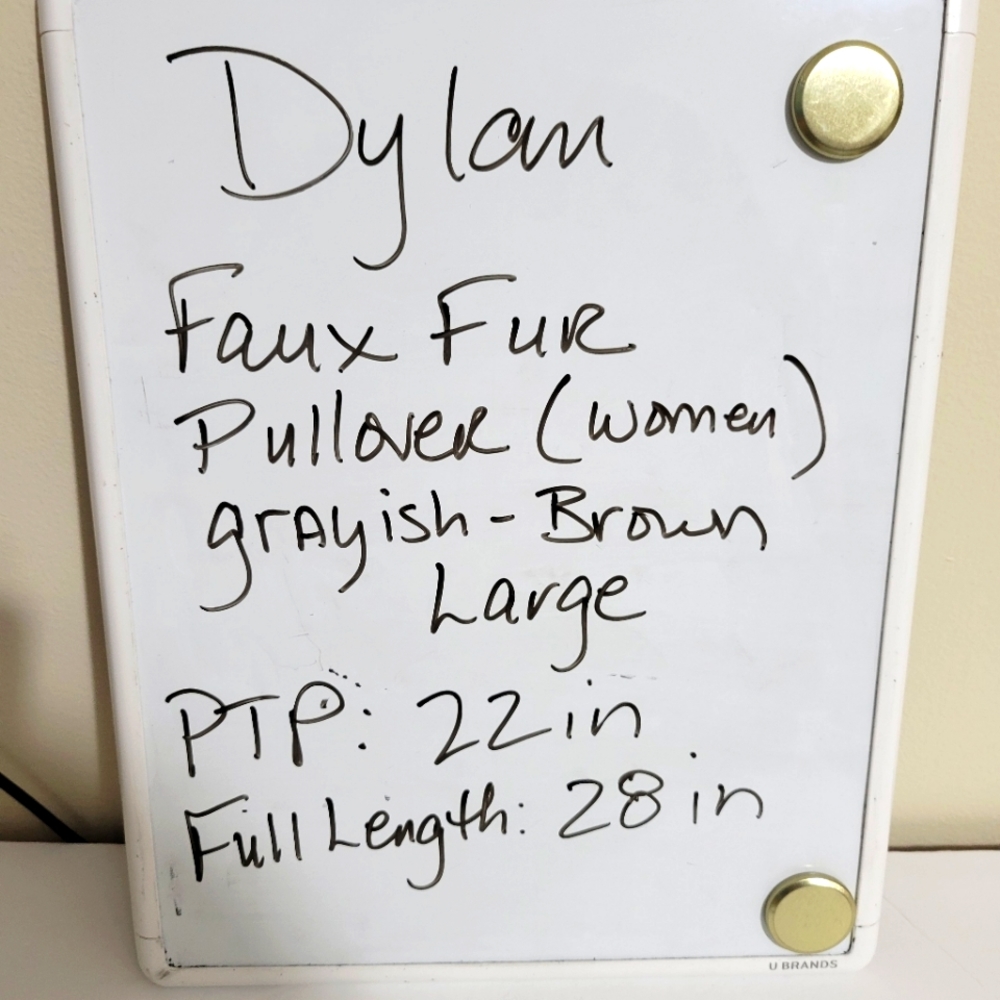 Dylan
Faux Fur
Pullover (women)
grayish - Brown
Large
PTP: 22 in
Full Length: 28 in
U BRANDS